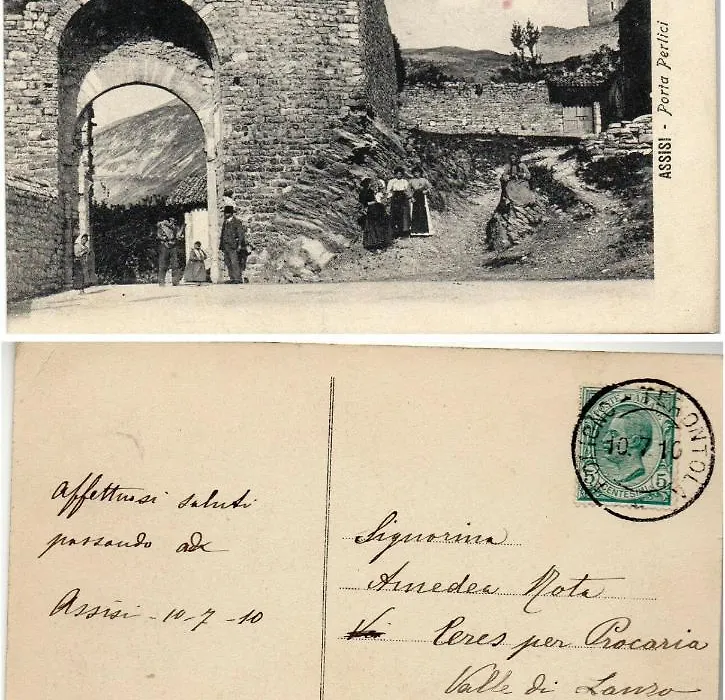 ASSISI - Porta Perlici
FOLIGNO - TERONTOLA
10.7.10
5 CENTESIMI 5
Affettuosi saluti
passando ad
Assisi - 10 - 7 - 10
Signorina
Amedea Nota
Ceres per Procaria
Valle di Lanzo